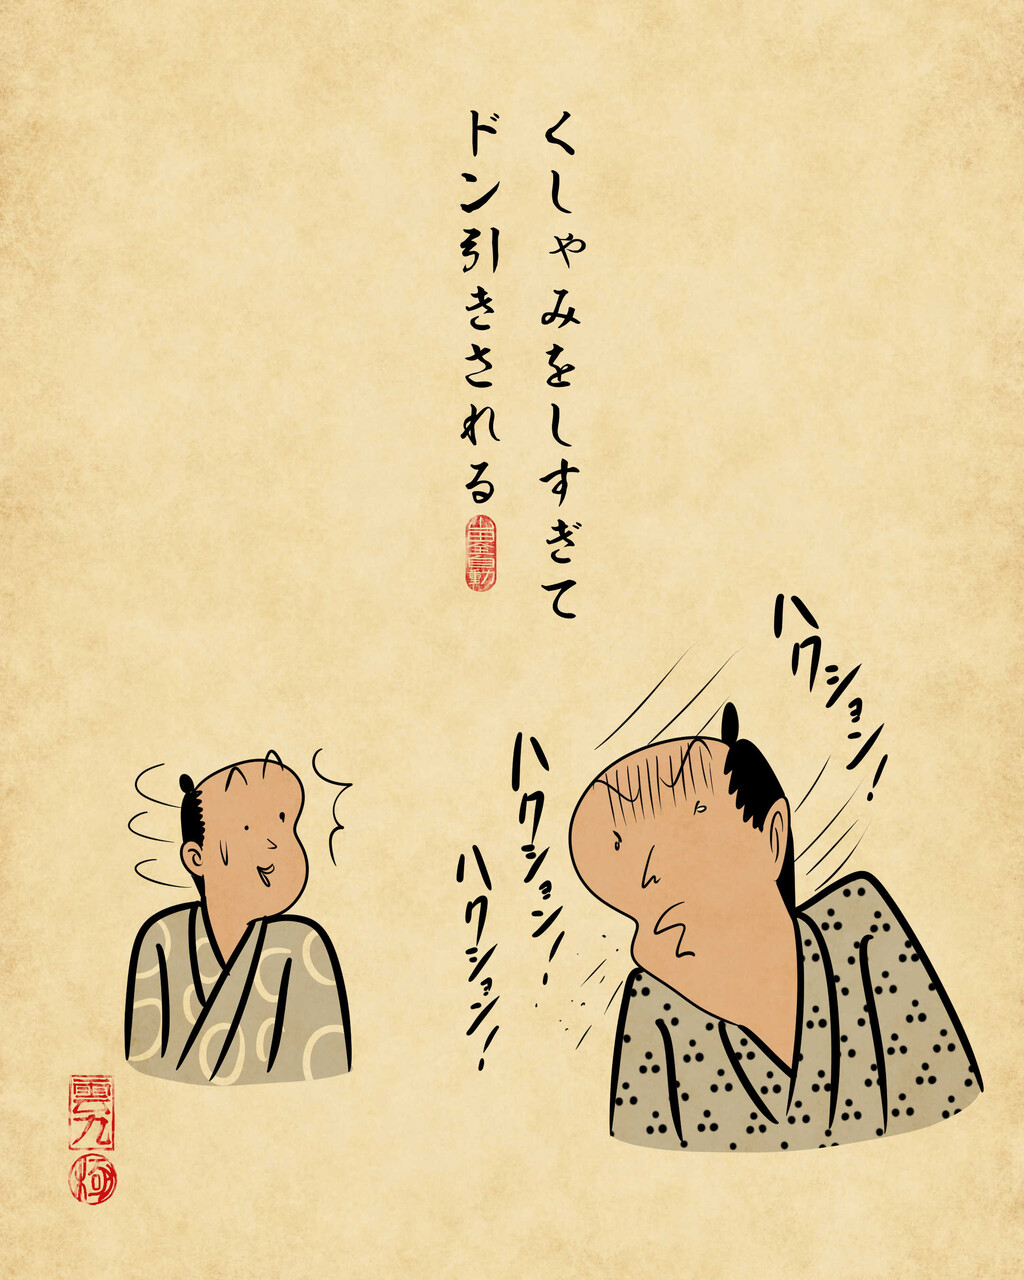 くしゃみをしすぎて
ドン引きされる
ハクション!
ハクション!
ハクション!